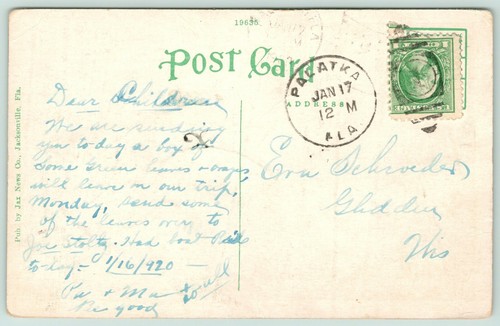 19635
Post Card
ADDRESS
PALATKA
JAN 17
12 M
FLA.
Dear Children
We are sending
you to day a box of
Some Green leaves + oranges
will leave on our trip
Monday, send some
of the leaves over to
Joe Stoltz. Had boat Ride
to-day - 1/16/1920 -
Pa + Ma
Be good
to all
Eva Schroeder
Glidden
Wis
Pub. by Jax News Co., Jacksonville, Fla.